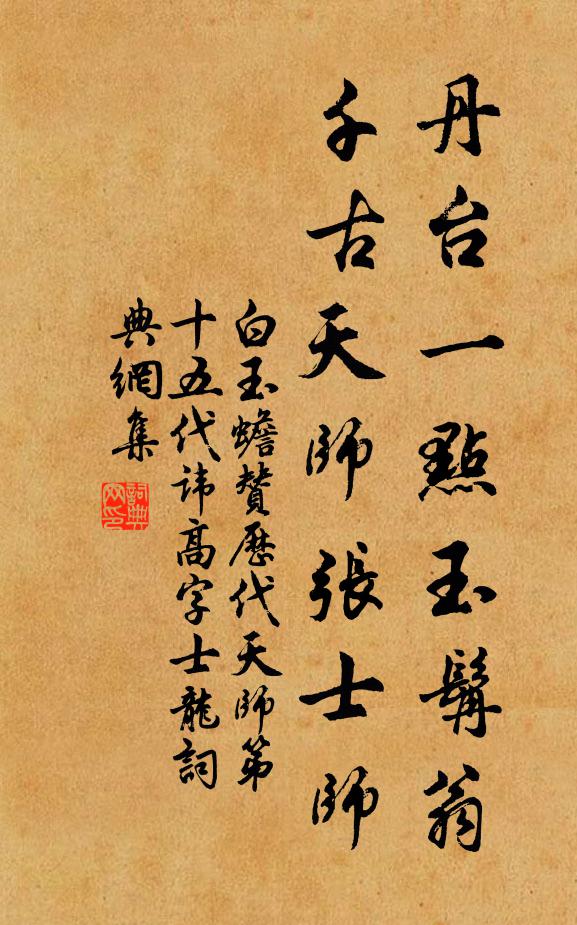 丹台一點玉髯翁
千古天師張士師
白玉蟾贊歷代天師第
十五代諱高字士龍詞
典網集
詞典
网印